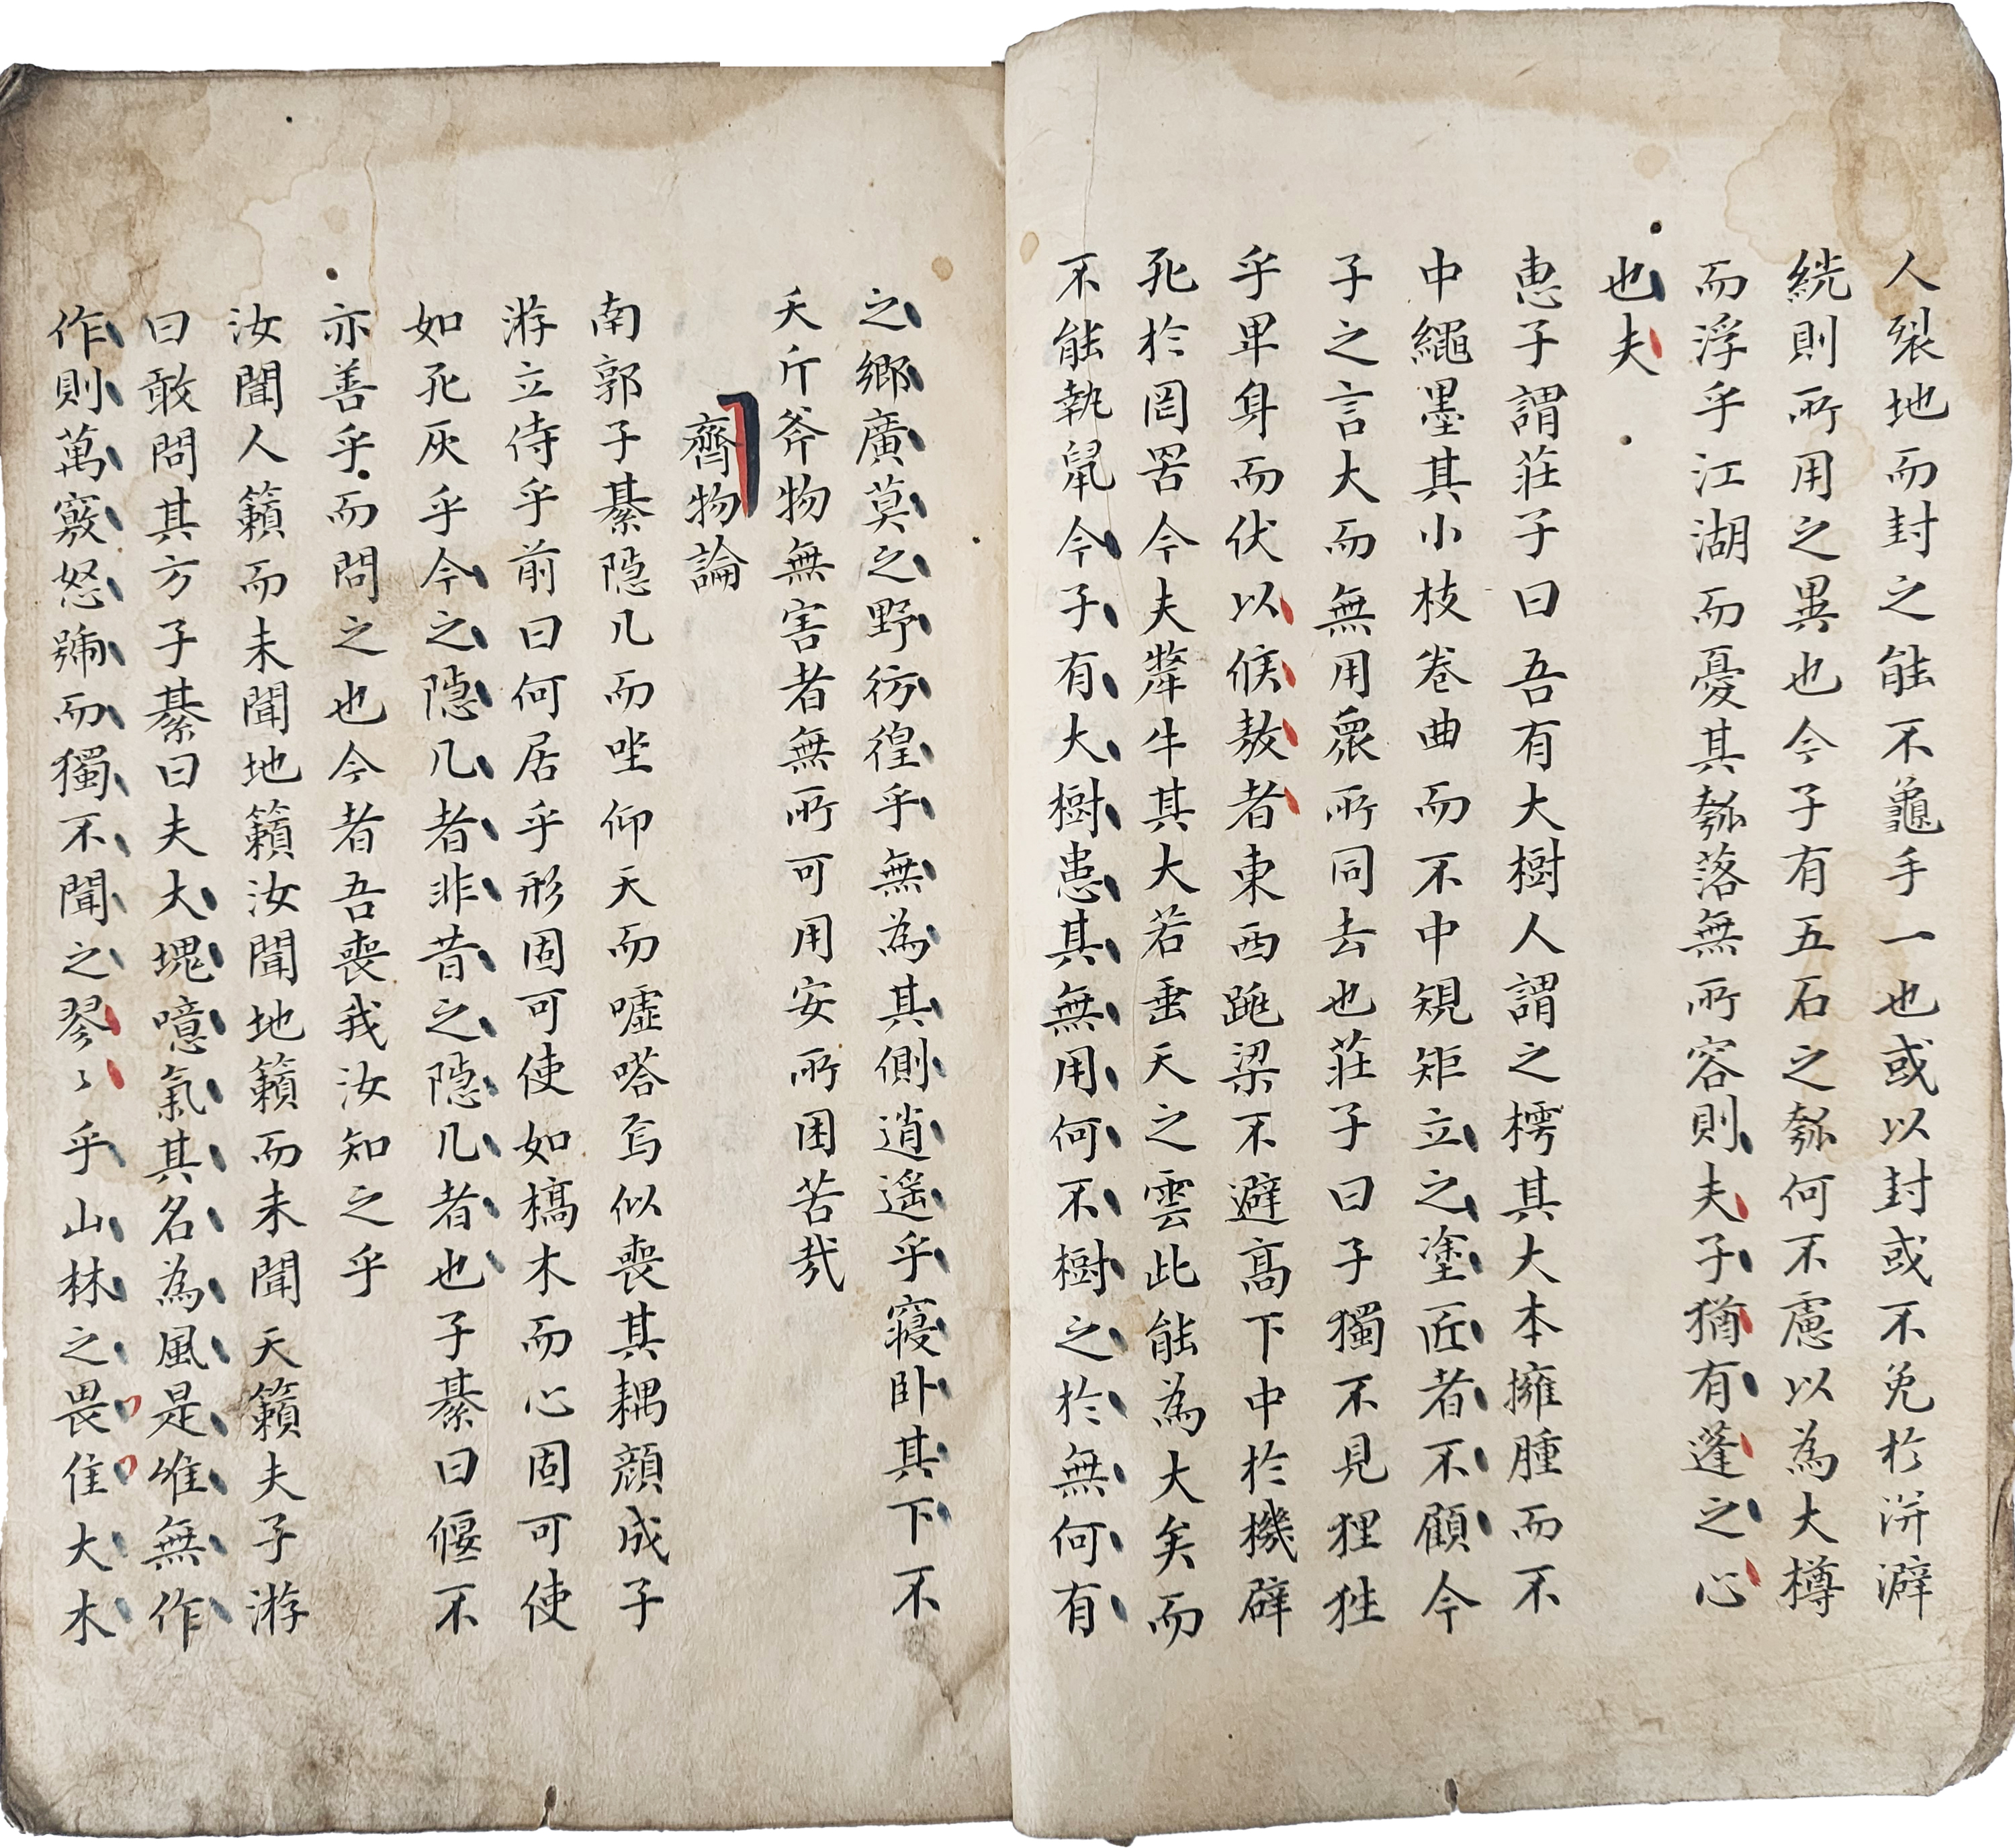 人裂地而封之能不龜手一也或以封或不免於洴澼
絖則所用之異也今子有五石之瓠何不慮以為大樽
而浮乎江湖而憂其瓠落無所容則夫子猶有蓬之心
也夫
惠子謂莊子曰吾有大樹人謂之樗其大本擁腫而不
中繩墨其小枝卷曲而不中規矩立之塗匠者不顧今
子之言大而無用衆所同去也莊子曰子獨不見狸狌
乎卑身而伏以候敖者東西跳梁不避高下中於機辟
死於罔罟今夫斄牛其大若垂天之雲此能為大矣而
不能執鼠今子有大樹患其無用何不樹之於無何有
之鄉廣莫之野彷徨乎無為其側逍遙乎寢卧其下不
夭斤斧物無害者無所可用安所困苦哉
齊物論
南郭子綦隱几而坐仰天而噓嗒焉似喪其耦顔成子
游立侍乎前曰何居乎形固可使如槁木而心固可使
如死灰乎今之隱几者非昔之隱几者也子綦曰偃不
亦善乎而問之也今者吾喪我汝知之乎
汝聞人籟而未聞地籟汝聞地籟而未聞天籟夫子游
曰敢問其方子綦曰夫大塊噫氣其名為風是唯無作
作則萬竅怒號而獨不聞之翏〻乎山林之畏隹大木